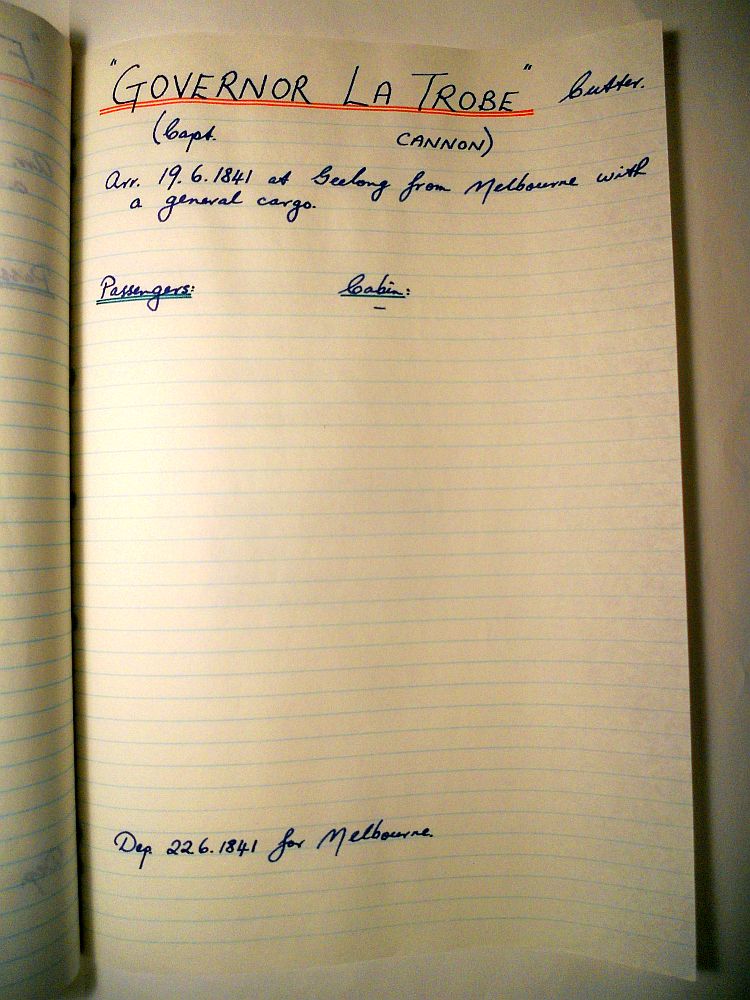 "GOVERNOR LA TROBE" Cutter.
(Capt. CANNON)
Arr. 19.6.1841 at Geelong from Melbourne with
a general cargo.
Passengers: Cabin:
–
Dep. 22.6.1841 for Melbourne.